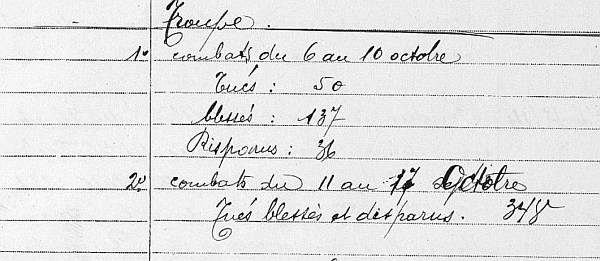 Troupe.
1º combats du 6 au 10 octobre
Tués : 50
blessés : 137
Disparus : 36
2º combats du 11 au 17 Octobre
Tués blessés et disparus. 348